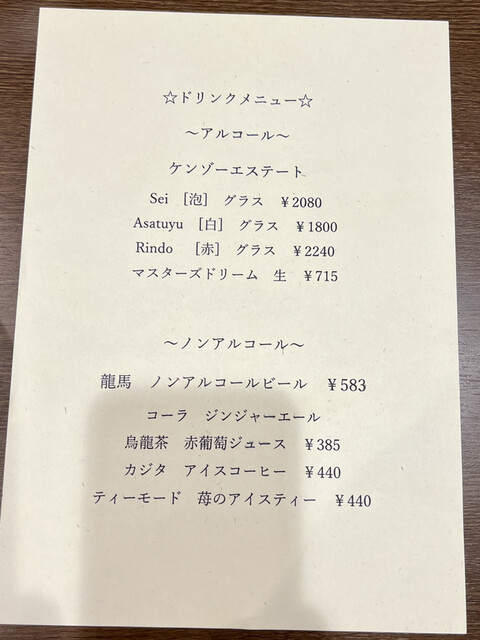 ☆ドリンクメニュー☆
～アルコール～
ケンゾーエステート
Sei ［泡］ グラス ￥2080
Asatuyu ［白］ グラス ￥1800
Rindo ［赤］ グラス ￥2240
マスターズドリーム 生 ￥715
～ノンアルコール～
龍馬 ノンアルコールビール ￥583
コーラ ジンジャーエール
烏龍茶 赤葡萄ジュース ￥385
カジタ アイスコーヒー ￥440
ティーモード 苺のアイスティー ￥440